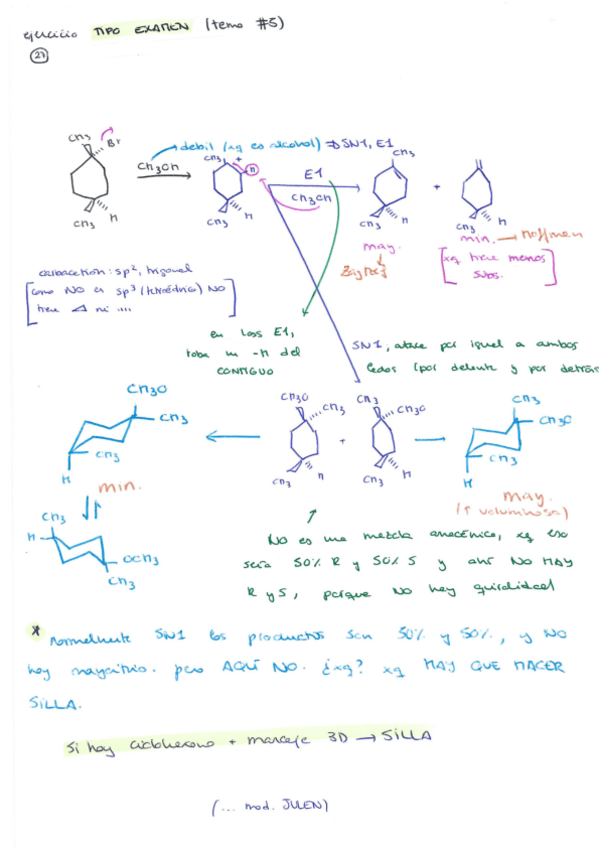 ejercicio TIPO EXAMEN (tema #5)
27
CH3
Br
CH3OH
débil (xq es alcohol) ⇒ SN1, E1
CH3
+
H
E1
CH3OH
CH3
+
CH3
H
CH3
H
CH3
H
CH3
H
may.
Zaytsev
min. → Hoffman
[xq tiene menos
subs.]
carbocation: sp², trigonal
[como NO es sp³ (tetraédrico) NO
tiene ◁ ni ....]
en loss E1,
roba un -H del
CONTIGUO
SN1, ataca por igual a ambos
lados (por delante y por detrás
CH3O
CH3
CH3
H
min.
CH3O
CH3
+
CH3
CH3O
CH3
H
CH3
H
CH3
CH3O
CH3
H
may.
(↑ voluminoso)
CH3
H
OCH3
CH3
NO es una mezcla racémica, xq eso
sería 50% R y 50% S y ahí NO HAY
R y S, porque NO hay quiralidad
* normalmente SN1 los productos son 50% y 50%, y NO
hay mayoritario. pero AQUÍ NO. ¿xq? xq HAY QUE HACER
SILLA.
Si hay ciclohexano + marcaje 3D → SILLA
(... mod. JULEN)